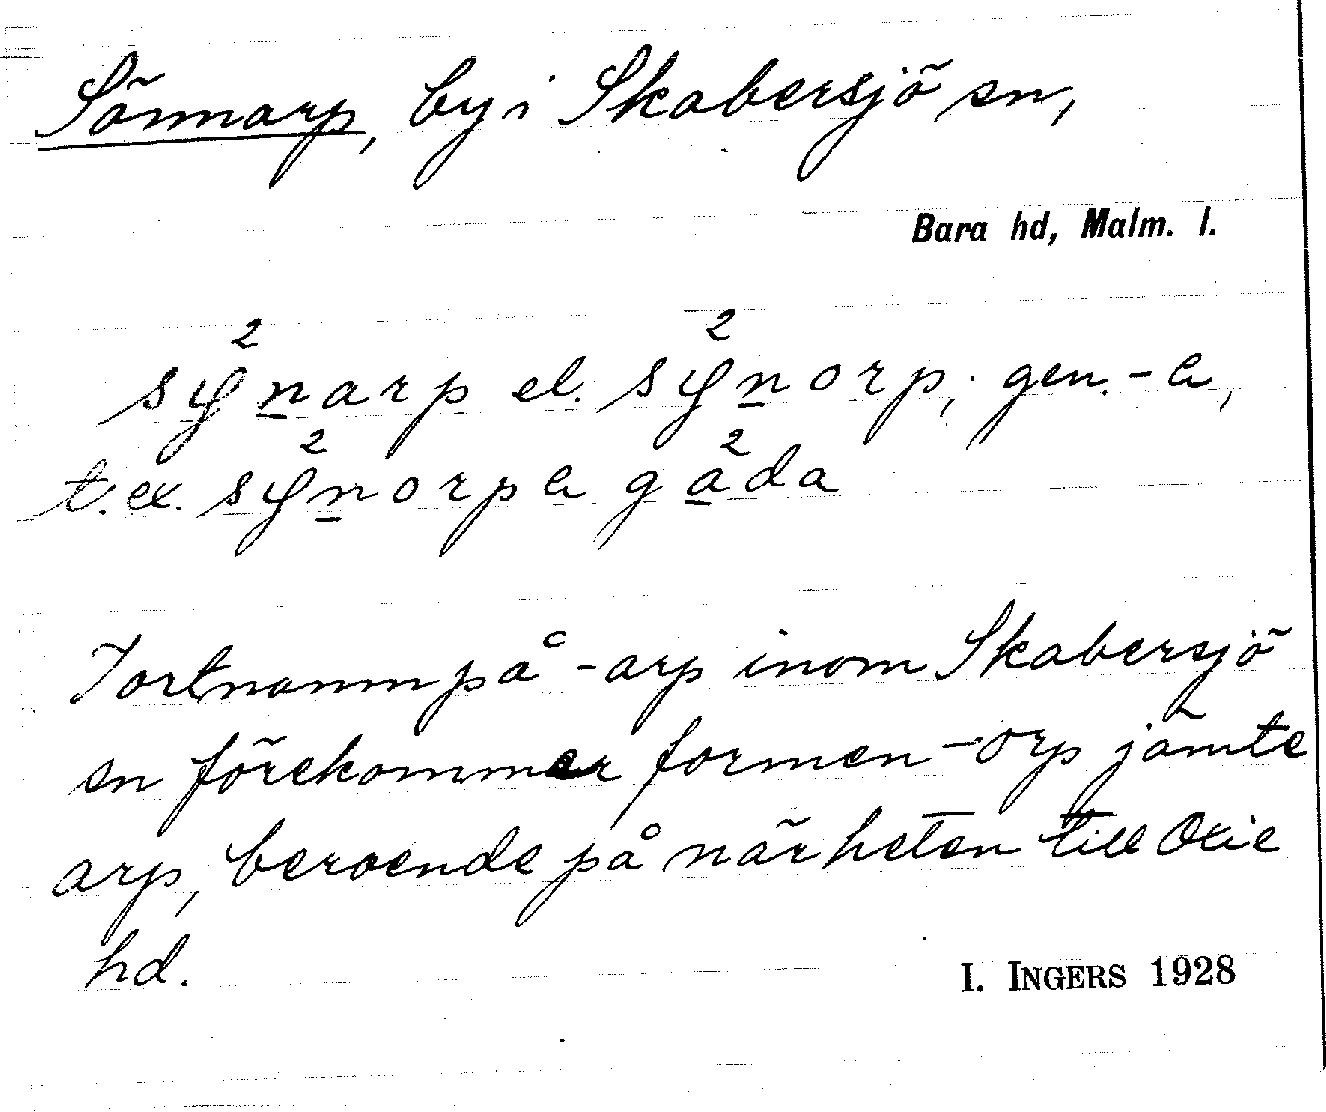 Sönnarp, by i Skabersjö sn,
Bara hd, Malm. l.
sy²narp el. sy²norp, gen. -a,
t.ex. sy²norpa gå²da
I ortnamn på -arp inom Skabersjö
sn förekommer formen -orp jämte
arp, beroende på närheten till Oxie
hd.
I. INGERS 1928